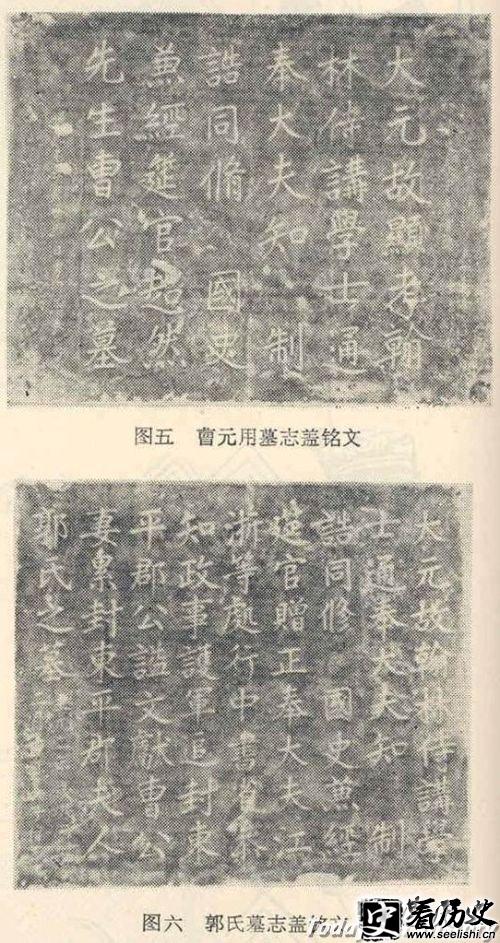 大元故顯考翰
林侍講學士通
奉大夫知 制
誥同脩 國史
兼經筵官超然
先生曹公之墓
图五 曹元用墓志盖铭文
大元故翰林侍講學
士通奉大夫知 制
誥同修 國史兼經
筵官贈正奉大夫江
浙等處行中書省參
知政事護軍追封東
平郡公謚文獻曹公
妻累封東平郡夫人
郭氏之墓
图六 郭氏墓志盖铭文
看历史
www.seelishi.cn